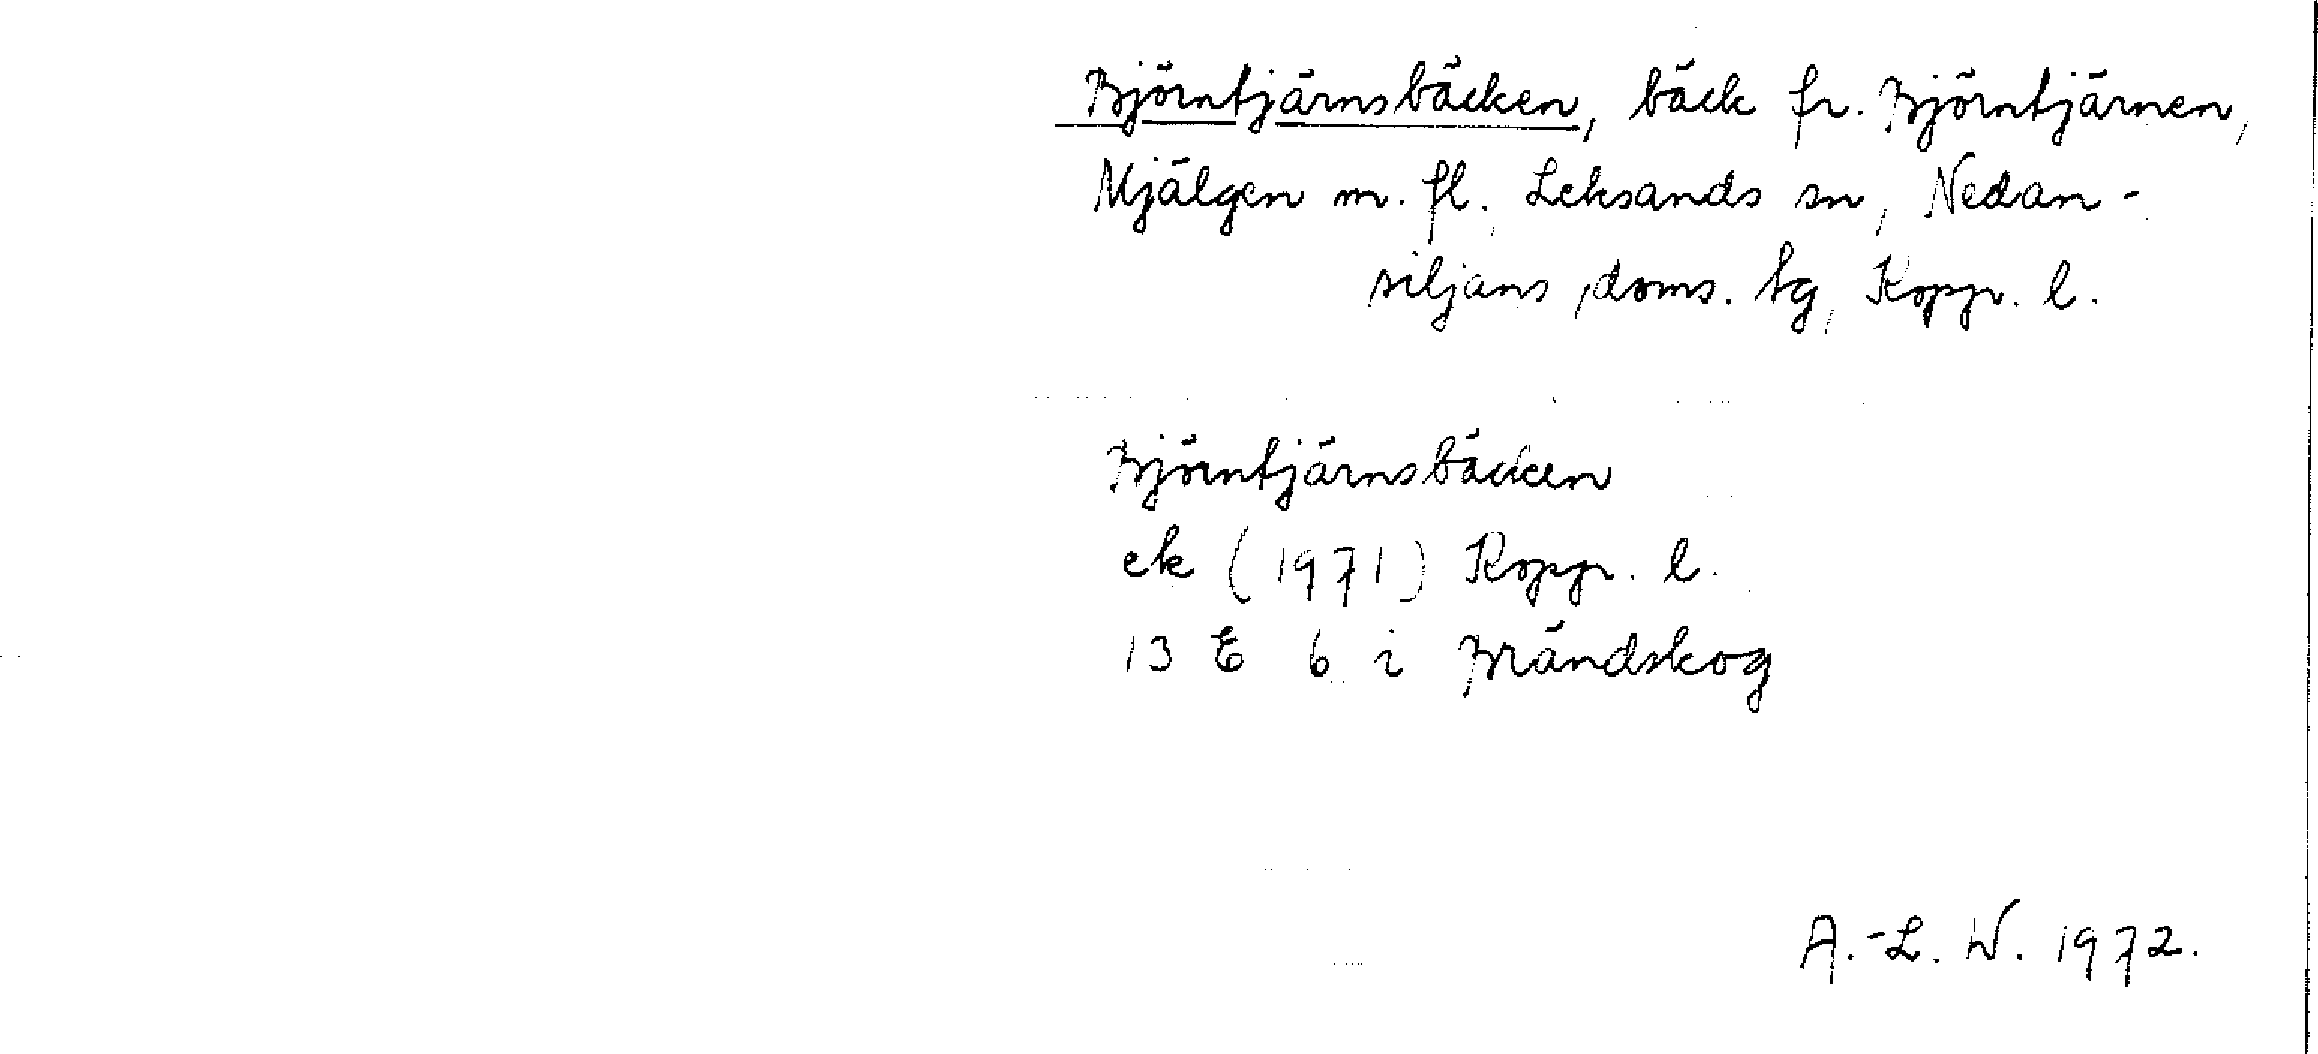 Björntjärnsbäcken, bäck fr. Björntjärnen,
Mjälgen m. fl., Leksands sn, Nedan-
siljans doms. tg, Kopp. l.
Björntjärnsbäcken
ek (1971) Kopp. l.
13 E 6 i Brändskog
A.-L. W. 1972.